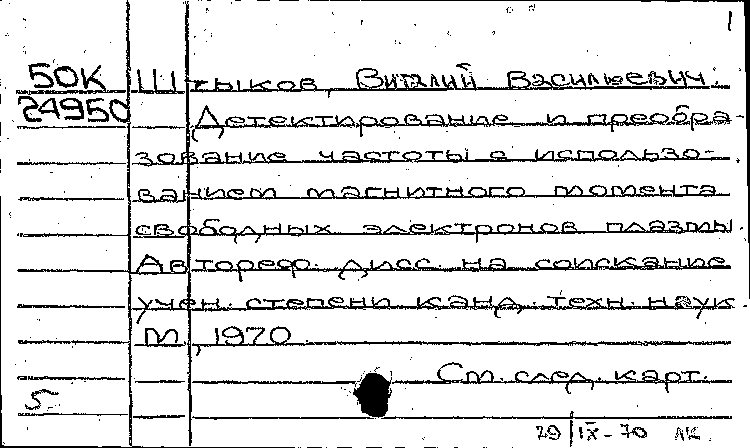 1
50К Штыков, Виталий Васильевич.
24950 Детектирование и преобра-
зование частоты с использо-
ванием магнитного момента
свободных электронов плазмы.
Автореф. дисс. на соискание
учен. степени канд. техн. наук.
М, 1970
См. след. карт.
5
29/IX-70 ЛК